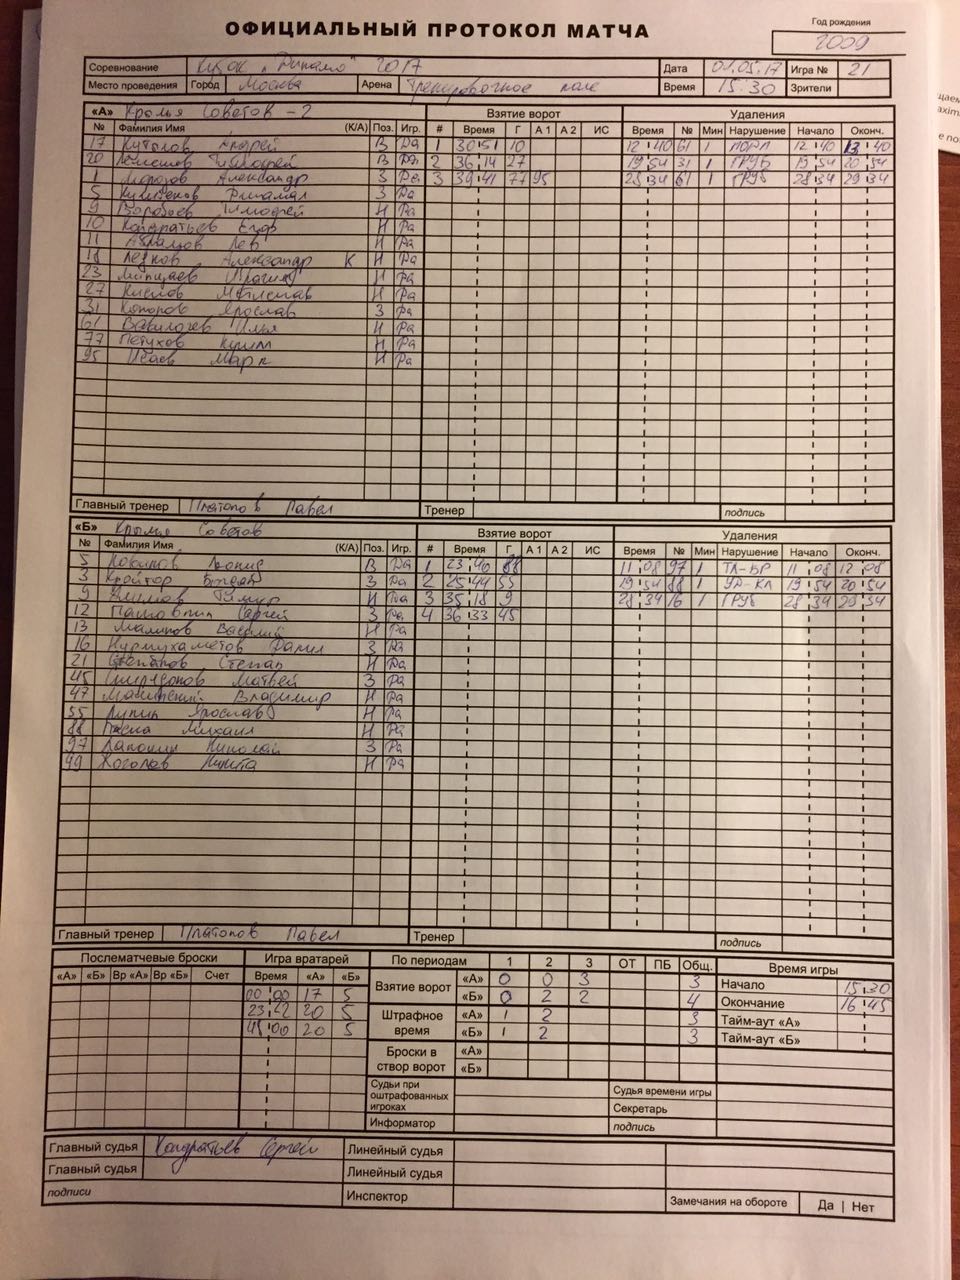 ОФИЦИАЛЬНЫЙ ПРОТОКОЛ МАТЧА
Год рождения
2009
Соревнование Кубок „Динамо" 2017 Дата 01.05.17 Игра № 21
Место проведения Город Москва Арена Тренировочное поле Время 15:30 Зрители
«А» Крылья Советов - 2 Взятие ворот Удаления
№ Фамилия Имя (К/А) Поз. Игр. # Время Г А 1 А 2 ИС Время № Мин Нарушение Начало Оконч.
17 Андрей В Да 1 30 51 10 12 40 61 1 12 40 13 40
20 Тимофей В Да 2 36 14 27 19 54 31 1 ГРУБ 19 54 20 54
1 Морозов Александр З Да 3 39 41 77 95 28 34 61 1 ГРУБ 28 34 29 34
5 З Да
9 Воробьев Тимофей Н Да
10 Кондратьев Егор Н Да
11 Лев Н Да
18 Александр К Н Да
23 Н Да
27 Кислов Мстислав Н Да
31 Ярослав З Да
61 Илья Н Да
77 Петухов Н Да
95 Исаев Марк Н Да
Главный тренер Платонов Павел Тренер подпись
«Б» Крылья Советов Взятие ворот Удаления
№ Фамилия Имя (К/А) Поз. Игр. # Время Г А 1 А 2 ИС Время № Мин Нарушение Начало Оконч.
5 В Да 1 23 46 88 11 08 97 1 11 08 12 08
3 Кройтор Богдан З Да 2 25 44 55 19 54 88 1 УД-КЛ 19 54 20 54
9 Климов Тимур Н Да 3 35 18 9 28 34 16 1 ГРУБ 28 34 29 34
12 Сергей З Да 4 36 33 45
13 Маликов Василий Н Да
16 Нурмухаметов Данил З Да
21 Степанов Степан Н Да
45 Спиридонов Матвей З Да
47 Владимир Н Да
55 Лупин Ярослав Н Да
88 Михаил Н Да
97 Николай З Да
99 Никита Н Да
Главный тренер Платонов Павел Тренер подпись
Послематчевые броски Игра вратарей По периодам 1 2 3 ОТ ПБ Общ. Время игры
«А» «Б» Вр «А» Вр «Б» Счет Время «А» «Б» Взятие ворот «А» 0 0 3 3 Начало 15 30
00 00 17 5 «Б» 0 2 2 4 Окончание 16 45
23 22 20 5 Штрафное время «А» 1 2 3 Тайм-аут «А»
45 00 20 5 «Б» 1 2 3 Тайм-аут «Б»
Броски в створ ворот «А»
«Б»
Судьи при оштрафованных игроках Судья времени игры
Секретарь
Информатор подпись
Главный судья Кондратьев Сергей Линейный судья
Главный судья Линейный судья
подписи Инспектор Замечания на обороте Да | Нет